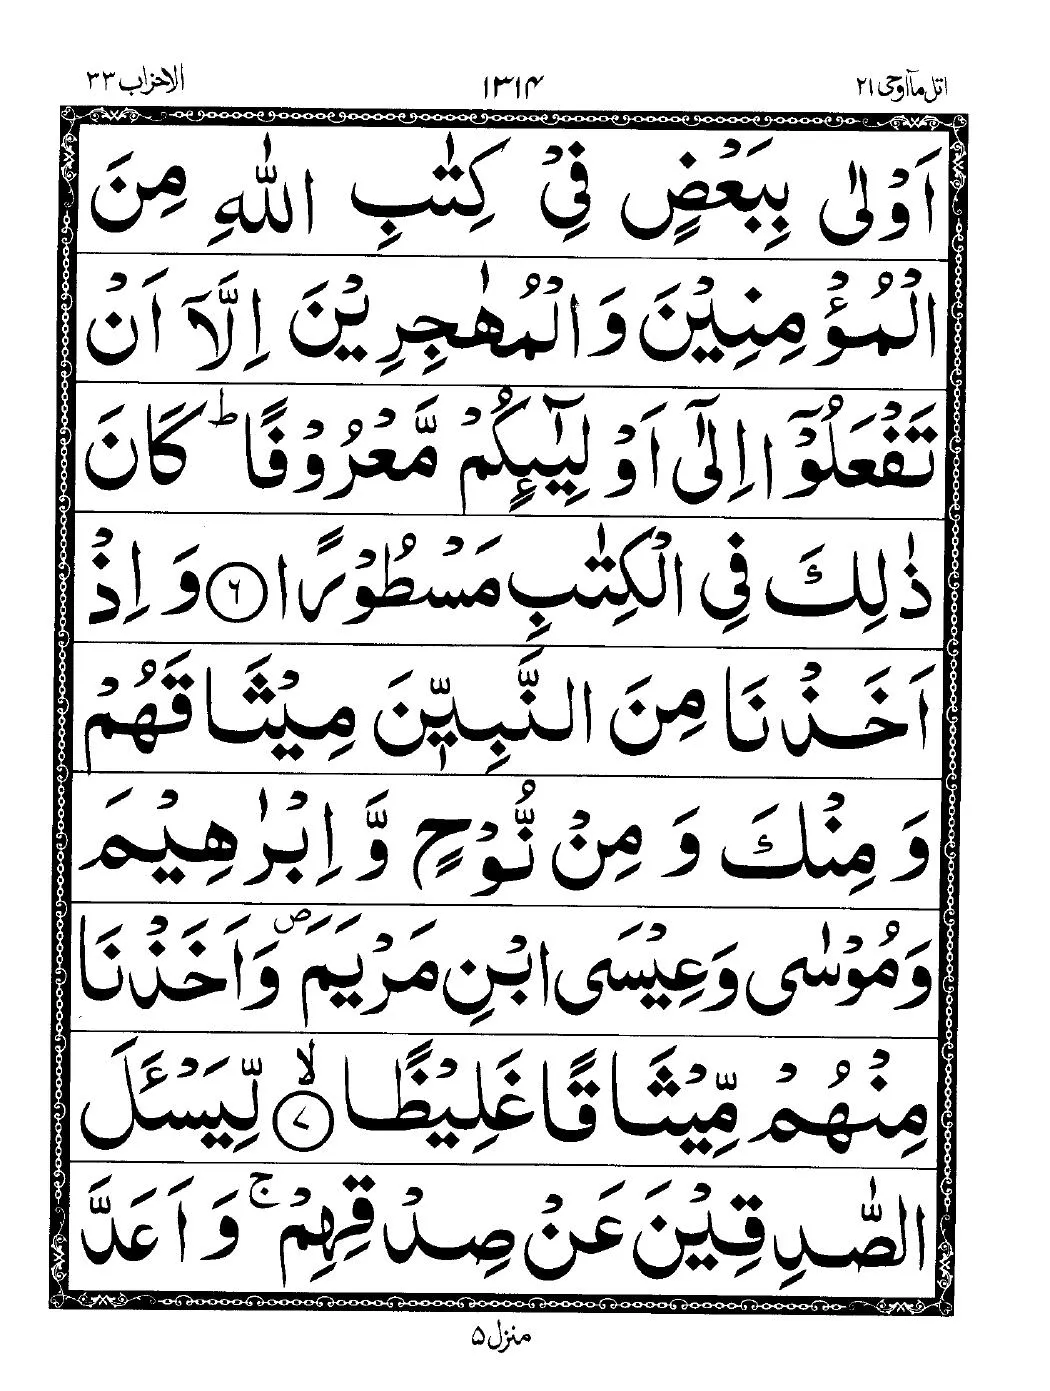 اتل مآ اوحی ۲۱ ۱۳۱۴ الاحزاب ۳۳
اَوْلٰى بِبَعْضٍ فِیْ كِتٰبِ اللّٰهِ مِنَ
الْمُؤْمِنِیْنَ وَالْمُهٰجِرِیْنَ اِلَّاۤ اَنْ
تَفْعَلُوْۤا اِلٰۤى اَوْلِیٰٓىٕكُمْ مَّعْرُوْفًا ؕ كَانَ
ذٰلِكَ فِی الْكِتٰبِ مَسْطُوْرًا ۶ وَ اِذْ
اَخَذْنَا مِنَ النَّبِیّٖنَ مِیْثَاقَهُمْ
وَ مِنْكَ وَ مِنْ نُّوْحٍ وَّ اِبْرٰهِیْمَ
وَ مُوْسٰى وَ عِیْسَى ابْنِ مَرْیَمَ ۪ وَ اَخَذْنَا
مِنْهُمْ مِّیْثَاقًا غَلِیْظًا ۙ ۷ لِّیَسْـَٔلَ
الصّٰدِقِیْنَ عَنْ صِدْقِهِمْ ۚ وَ اَعَدَّ
منزل ۵